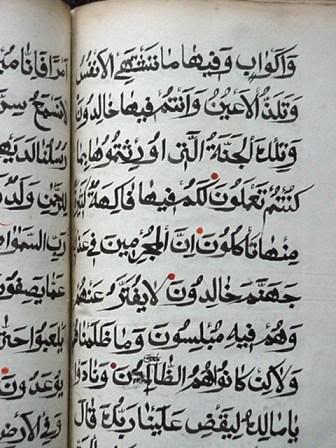 وَاَكْوَابٍ وَفِيهَا مَا تَشْتَهِي الْاَنْفُسُ
وَتَلَذُّ الْاَعْيُنُ وَاَنْتُمْ فِيهَا خَالِدُونَ
وَتِلْكَ الْجَنَّةُ الَّتِي اُورِثْتُمُوهَا بِمَا
كُنْتُمْ تَعْمَلُونَ لَكُمْ فِيهَا فَاكِهَةٌ
مِنْهَا تَاْكُلُونَ اِنَّ الْمُجْرِمِينَ فِي
جَهَنَّمَ خَالِدُونَ لَا يُفَتَّرُ عَنْهُمْ
وَهُمْ فِيهِ مُبْلِسُونَ وَمَا ظَلَمْنَاهُمْ
وَلٰكِنْ كَانُوا هُمُ الظَّالِمِينَ وَنَادَوْا
يَا مَالِكُ لِيَقْضِ عَلَيْنَا رَبُّكَ قَالَ
اَمْرًا فَاِنَّا
لَا نَسْمَعُ
رُسُلُنَا لَدَيْهِمْ
لِلرَّحْمٰنِ وَلَدٌ
رَبِّ
عَمَّا يَصِفُونَ
يَلْعَبُوا حَتّٰى
يُوعَدُونَ
وَفِي الْاَرْضِ